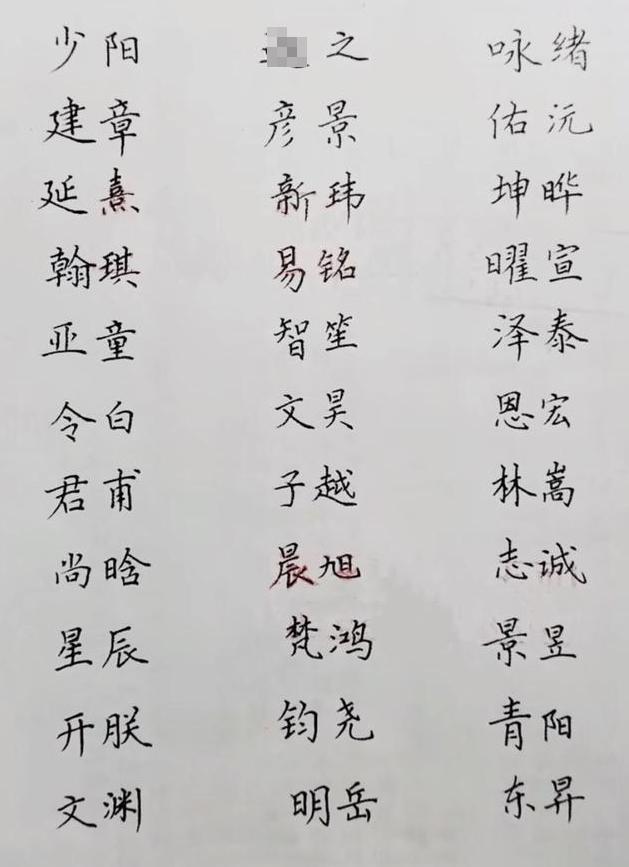 少阳 之 咏绪
建章 彦景 佑沅
延熹 新玮 坤晔
翰琪 易铭 曜宣
亚童 智笙 泽泰
令白 文昊 恩宏
君甫 子越 林嵩
尚晗 晨旭 志诚
星辰 梵鸿 景昱
开朕 钧尧 青阳
文渊 明岳 东昇